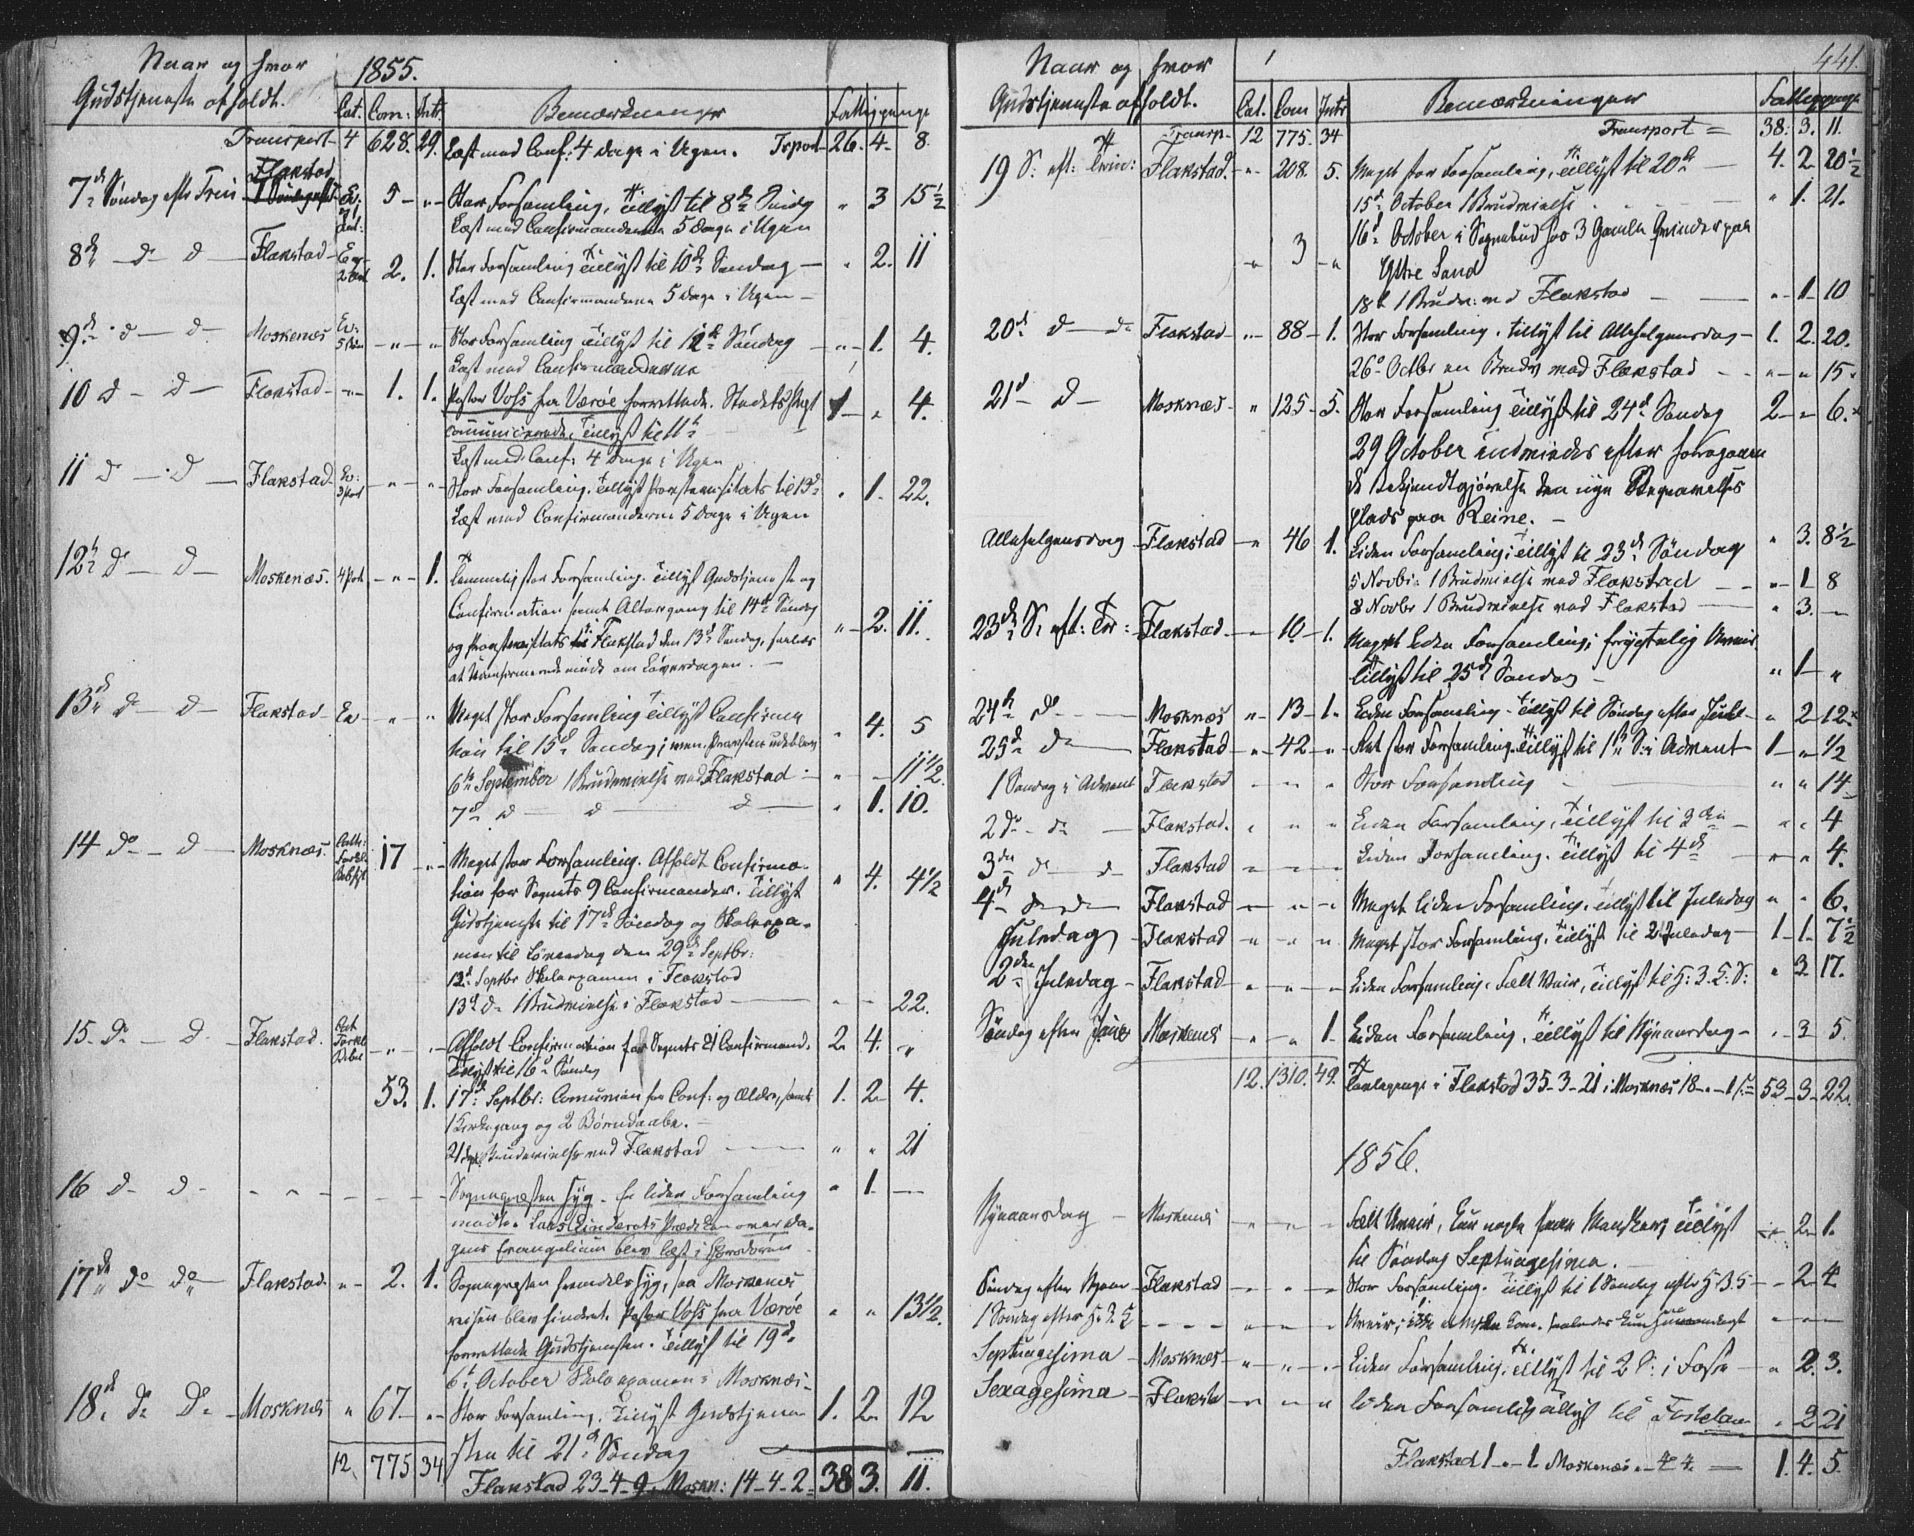 Naar og hvor
Gudstjeneste afholdt.
1855.
Cat. Com: Intr: Bemærkninger Fattigpenge
Transport 4 628. 29. Læst med Conf: 4 Dage i Ugen. Trport 26. 4. 8.
7de Søndag efter Trin Flakstad Ev. 5 - „ Stor Forsamling, Tillyst til 8de Søndag „ 3 15½
Læst med Confirmanderne 5 Dage i Ugen
8de — d — d — Flakstad 2. 1. Stor Forsamling Tillyst til 10de Søndag „ 2. 11
Læst med Confirmanderne 5 Dage i Ugen —
9de — d — d — Moskenæs Ev: „ „ Stor Forsamling Tillyst til 12te Søndag „ 1. 4.
Læst med Confirmanderne
10 d — d — Flakstad „ 1. 1. Pastor Voss fra Værøe forrettede. Stedets Præst 1 „ 4.
communicerede. Tillyst til 11te
Læst med Conf: 4 Dage i Ugen
11 d — d — Flakstad Ev: „ „ Stor Forsamling. Tillyst Provstevisitats til 13de „ 1. 22.
Læst med Confirmanderne 5 Dage i Ugen
12te d — d — Moskenæs. „ 1. Temmelig stor Forsamling. Tillyst Gudstjeneste og
Confirmation samt Altergang til 14de Søndag „ 2. 11.
og Provstevisitats i Flakstad den 13de Søndag,
at Confirmanderne møde om Løverdagen. —
13de d — d — Flakstad Ev „ „ Meget stor Forsamling Tillyst Confirma „ 4. 5
tion til 15de Søndag; men Provsten udeblev
6te September 1 Brudevielse ved Flakstad „ — 11½
7de d — d — d — „ 1. 10.
14 do — d — Moskenæs. 17 „ Meget stor Forsamling. Afholdt Confirma- „ 4. 4½
tion for Sognets 9 Confirmander. Tillyst
Gudstjeneste til 17de Søndag og Skoleexa-
men til Løverdag den 29de Septbr:
12te Septbr Skoleexamen i Flakstad
13de d 1 Brudevielse i Flakstad — „ — 22.
15 d — d — Flakstad. „ „ Afholdt Confirmation for Sognets 21 Confirmand. 2. 4. „
Tillyst til 16de Søndag
53. 1. 17de Septbr: Comunion for Conf: og Ældre, samt 1. 2. 4.
1 Kirkegang og 2 Børnedaabe. —
21de Brudevielse ved Flakstad — „ „ 21
16 d — d — Sognepræsten syg. En liden Forsamling „ 1. —
mødte. Lars Prædiken over Da-
gens Evangelium blev læst i Chorsdøren
17de do do Flakstad „ 2. 1. Sognepræsten fremdeles syg, saa Moskenæs
reisen blev hindret. Pastor Voss fra Værøe „ „ 13½.
forrettede Gudstjenesten. Tillyst til 19de
6te October Skoleexamen i Moskenæs —
18de d — d — Moskenæs „ 67 „ Stor Forsamling. Tillyst Gudstjene- 1. 2. 12
sten til 21de Søndag
12. 775 34 Flakstad 23-4-9. Moskn: 14-4-2 38 3. 11.
441.
Naar og hvor
Gudstjeneste afholdt.
Cat. Com Intr Bemærkninger Fattigpenge
Transp. 12 775. 34 Transport = 38. 3. 11.
19 S: eft: Trin: Flakstad. „ 208. 5. Meget stor Forsamling, Tillyst til 20de — 4. 2. 20½
15de October 1 Brudevielse „ 1. 21.
„ 3 „ 16de October i Sognebud hos 3 Gamle Qvinder paa
Yttre Sand
18de 1 Brudev: ved Flakstad — „ 1 10
20de d — d Flakstad „ 88 1. Stor Forsamling. Tillyst til Allehelgensdag — 1. 2. 20.
26de Octbr en Brudev ved Flakstad — „ „ 15.
21de d — Moskenæs „ 125 5. Stor Forsamling Tillyst til 24de Søndag 2 „ 6.
29 October indviedes efter foregaaen
de Bekjendtgjørelse den nye Begravelses
plads paa Reine. —
Allehelgensdag Flakstad „ 46 1. Liden Forsamling; Tillyst til 23de Søndag „ 3. 8½
5 Novbr: 1 Brudevielse ved Flakstad — „ 1 8
8 Novbr 1 Brudevielse ved Flakstad — „ 3. —
23de S. eft: Tr: Flakstad „ 10 1. Meget liden Forsamling; frygtelig Uveir
Tillyst til 25de Søndag — „ 1 „
24de d — Moskenæs „ 13 1. Liden Forsamling. Tillyst til Søndag efter Juul „ 2 12.
25de d — Flakstad „ 42 „ Ret stor Forsamling. Tillyst til 1ste S: i Advent 1 „ ½
1 Søndag i Advent Flakstad „ „ „ Stor Forsamling — „ „ 14
2d — d — Flakstad. „ „ „ Liden Forsamling, Tillyst til 3die — „ „ 4
3die d — d Flakstad „ „ „ Liden Forsamling. Tillyst til 4de — „ „ 4.
4de d — d Flakstad „ „ „ Meget liden Forsamling. Tillyst til Juledag „ „ 6.
Juledag Flakstad „ „ „ Meget stor Forsamling. Tillyst til 2 Juledag — 1. 1. 7½
2den Juledag Flakstad „ „ „ Liden Forsamling. Fælt Veir, Tillyst til H: 3. K. S: „ 3 17.
Søndag efter Juul Moskenæs „ „ 1. Liden Forsamling. Tillyst til Nytaarsdag — „ 3 5.
12. 1310. 49. Tavlepenge i Flakstad 35-3-21 i Moskenæs 18 „ 1 53. 3. 22.
1856.
Nytaarsdag — Moskenæs „ „ „ Fælt Uveir, kun nogle faae Mennesker Tillyst „ 2. 1.
til Søndag Septuagesima. —
Søndag efter Nytaar Flakstad „ „ „ Stor Forsamling. Tillyst til 1 Søndag efter H 3 K „ 2 4
1 Søndag efter H. 3. K „ „ „ Uveir;
Septuagesima Moskenæs „ „ „ Liden Forsamling. Tillyst til 2 S: i Faste — „ 2. 3.
Sexagesima Flaksta „ „ „ liden Forsamling Tillyst til Fastelavn „ 2 21
Flakstad 1 „ 1. Moskenæs „ 4 4. — 1. 4. 5.